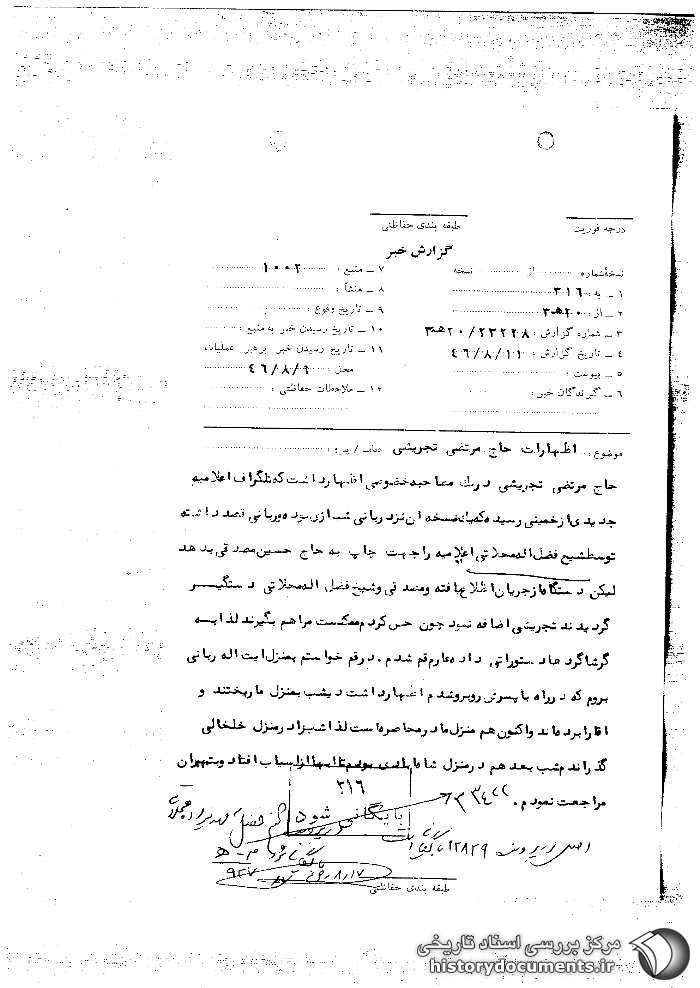 درجه فوریت
طبقه بندی حفاظتی
گزارش خبر
نسخه‌شماره ........ از ........ نسخه
۱ ـ به : ۳۱۶
۲ ـ از : ۲۰ ه‍ ۳
۳ ـ شماره گزارش : ۲۳۲۲۸ / ۲۰ ه‍ ۳
۴ ـ تاریخ گزارش : ۴۶/۸/۱۱
۵ ـ پیوست :
۶ ـ گیرندگان خبر :
۷ ـ منبع : ۱۰۰۲
۸ ـ منشأ :
۹ ـ تاریخ وقوع :
۱۰ ـ تاریخ رسیدن خبر به منبع :
۱۱ ـ تاریخ رسیدن خبر برهبر عملیات
محل : ۴۶/۸/۹
۱۲ ـ ملاحظات حفاظتی :
موضوع : اظهارات حاج مرتضی تجریشی عطف / پیرو :
حاج مرتضی تجریشی در یک مصاحبه خصوصی اظهار داشت که تلگراف اعلامیه
جدیدی از خمینی رسیده که یک نسخه آن نزد ربانی شیرازی بوده و ربانی قصد داشته
توسط شیخ فضل اله محلاتی اعلامیه را جهت چاپ به حاج حسین مصدقی بدهد
لیکن دستگاه از جریان اطلاع یافته و مصدقی و شیخ فضل اله محلاتی دستگیر
گردیدند تجریشی اضافه نمود چون حس کردم ممکنست مرا هم بگیرند لذا به
گرشاگردها دستوراتی داده عازم قم شدم . در قم خواستم بمنزل ایت اله ربانی
بروم که در راه با پسرش روبرو شدم اظهار داشت دیشب بمنزل ما ریختند و
اقا را برده اند و اکنون هم منزل ما در محاصره است لذا شب را در منزل خلخالی
گذراندم شب بعد هم در منزل شاه‌ابادی بودم تا ابها از اسیاب افتاد و بتهران
مراجعت نمودم .
۳۱۶
بایگانی شود
اصل در پرونده ۱۲۸۲۹ بایگانی است
۸/۱۷
طبقه بندی حفاظتی
مرکز بررسی اسناد تاریخی
historydocuments.ir